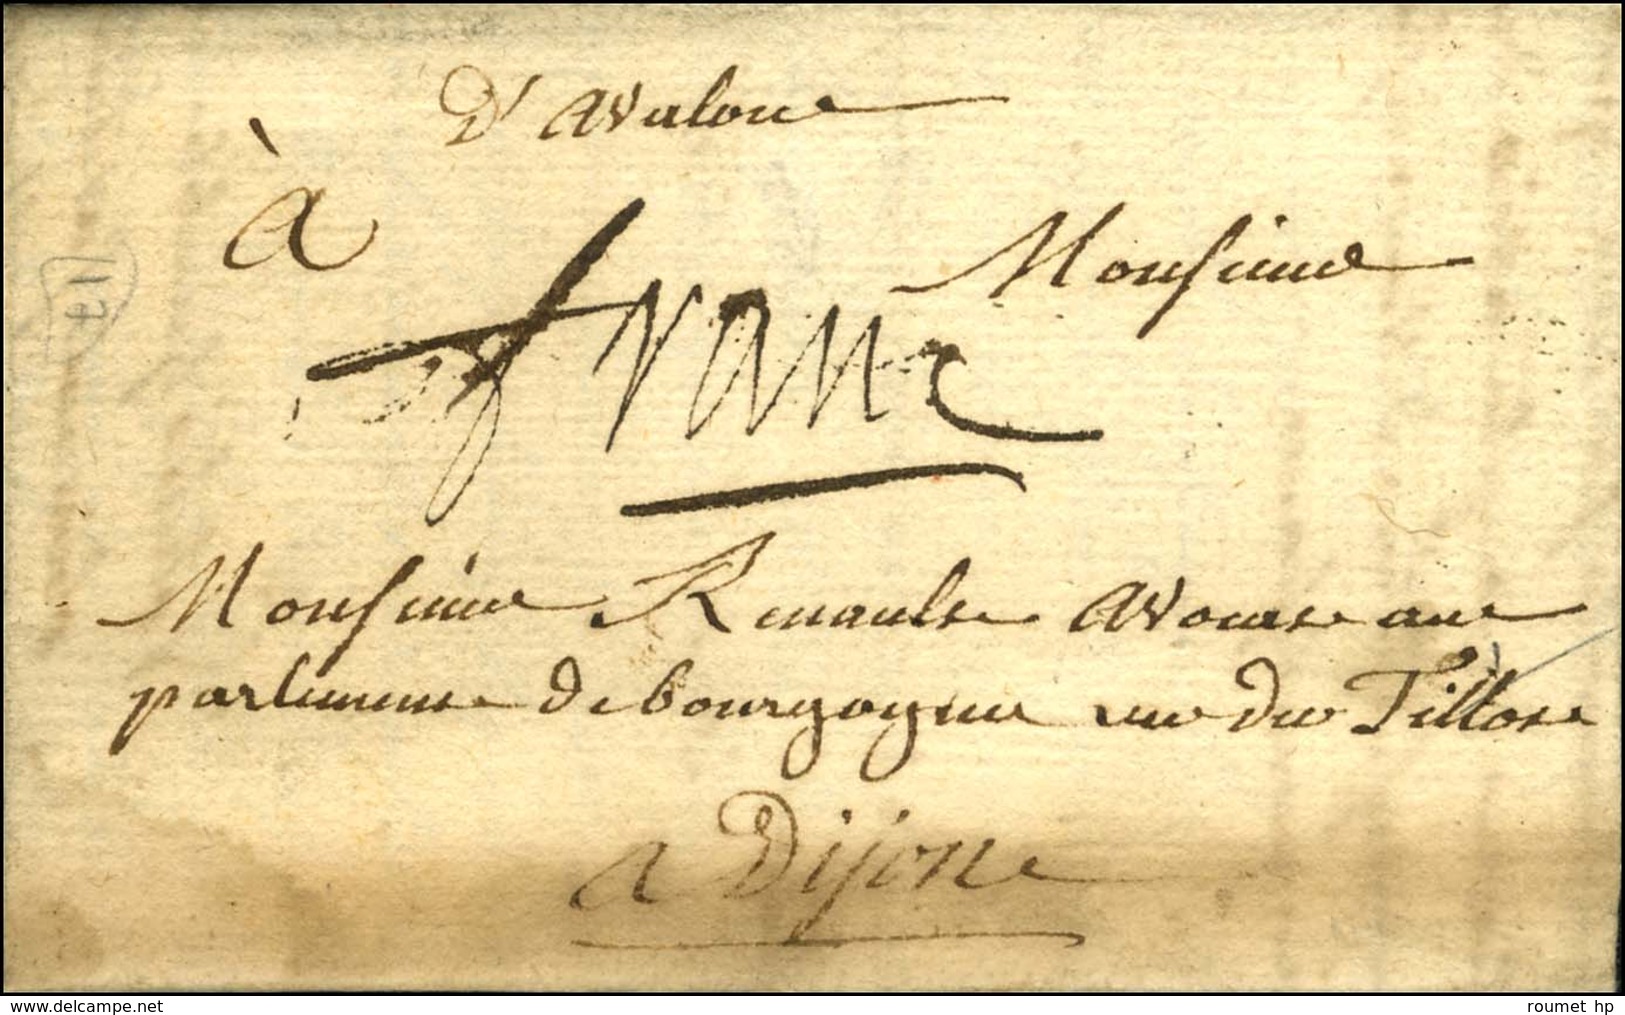 D'Avalon
à
Monsieur
franc
Monsieur Renault Avocat au
parlement de bourgogne rue du Tillot
a Dijon
delcampe.net
roumet hp